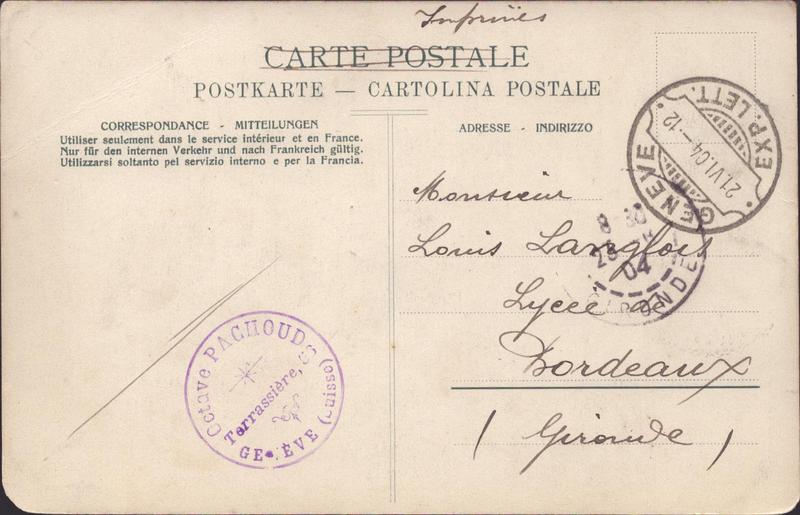 Imprimés
CARTE POSTALE
POSTKARTE — CARTOLINA POSTALE
CORRESPONDANCE - MITTEILUNGEN
Utiliser seulement dans le service intérieur et en France.
Nur für den internen Verkehr und nach Frankreich gültig.
Utilizzarsi soltanto pel servizio interno e per la Francia.
ADRESSE - INDIRIZZO
GENÈVE
21.VI.04—12
EXP. LETT.
Monsieur
Louis Langlois
Lycée de
Bordeaux
(Gironde)
8 30
04
GIRONDE
Octave PACHOUD
Terrassière,
GENÈVE (Suisse)